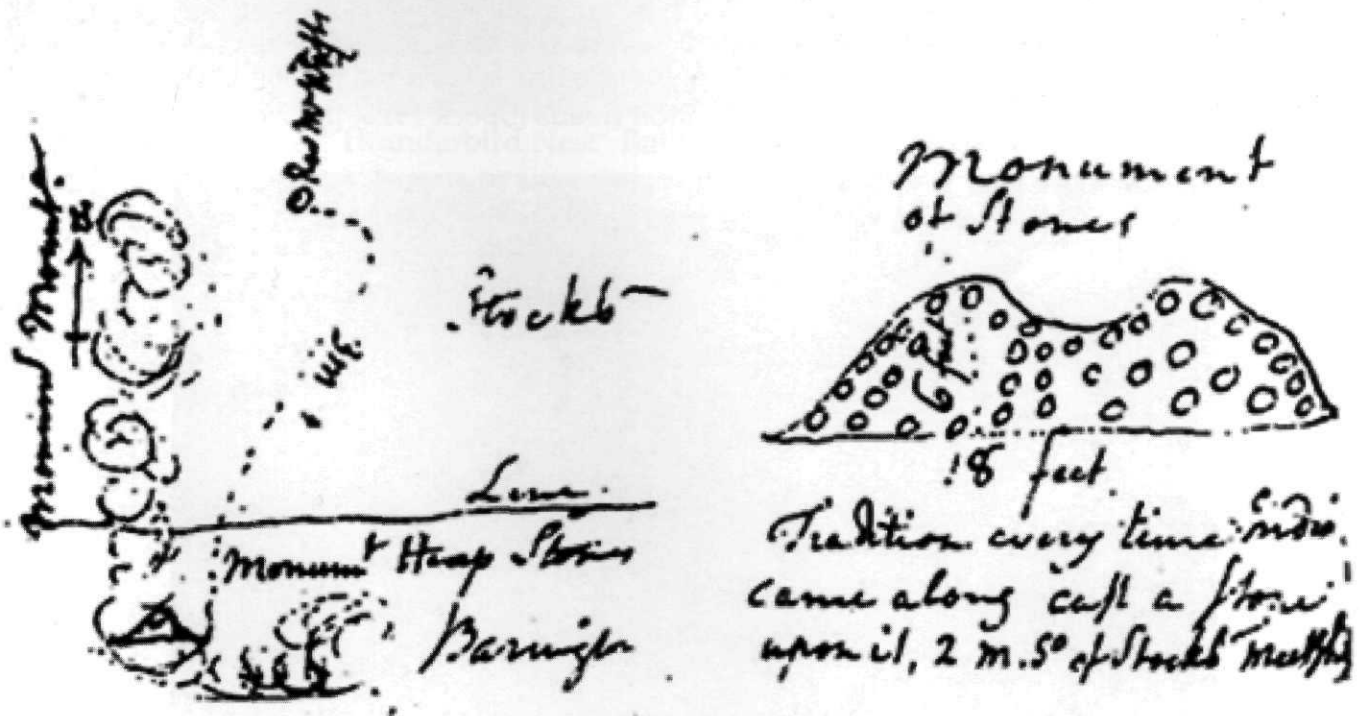 Monument Mount.
N
Rev Mr
Stockb
Line
Monumt Heap Stones
Barrington
Monument
of Stones
6 feet
18 feet
Tradition every time Indns.
came along cast a stone
upon it, 2 m. So of Stockb Meetghs